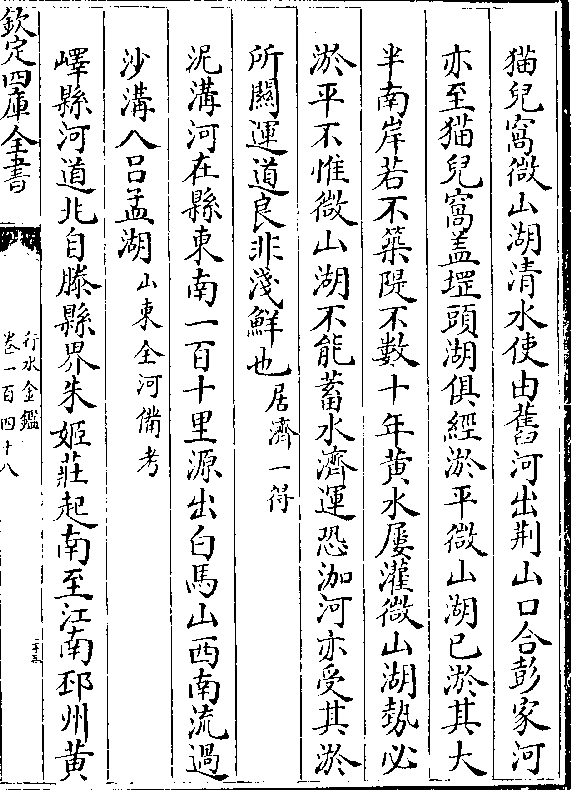 猫兒窩微山湖清水使由舊河出荆山口合彭家河
亦至猫兒窩盖堽頭湖俱經淤平微山湖已淤其大
半南岸若不築隄不數十年黄水屢灌微山湖勢必
淤平不惟微山湖不能蓄水濟運恐泇河亦受其淤
所關運道良非淺鮮也居濟一得
泥溝河在縣東南一百十里源出白馬山西南流過
沙溝入吕孟湖山東全河備考
嶧縣河道北自滕縣界朱姬莊起南至江南邳州黄
欽定四庫全書
行水金鑑
卷一百四十八
二十五